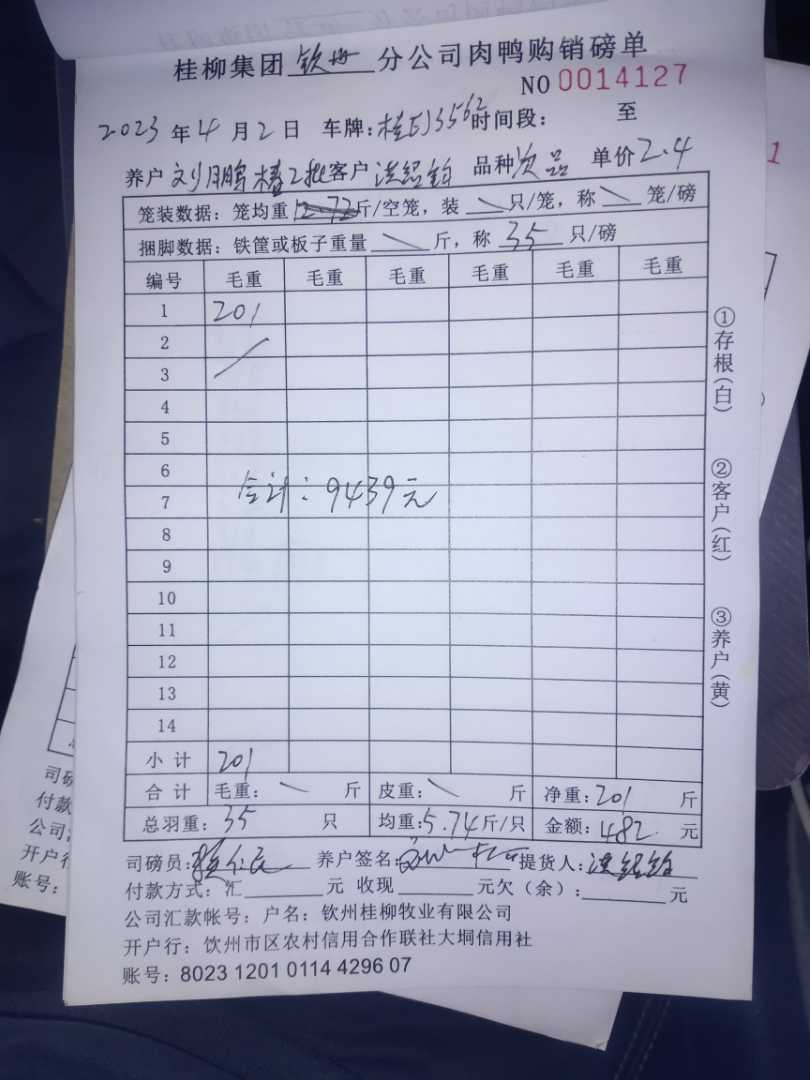 桂柳集团 钦州 分公司肉鸭购销磅单
NO 0014127
2023 年 4 月 2 日 车牌：桂 J3562 时间段： 至
养户 刘鹏椿2批 客户 洪绍铂 品种 次品 单价 2.4
笼装数据：笼均重 斤/空笼，装 \ 只/笼，称 \ 笼/磅
捆脚数据：铁筐或板子重量 \ 斤，称 35 只/磅
编号 毛重 毛重 毛重 毛重 毛重 毛重
1 201
2
3
4
5
6
合计：9439元
7
8
9
10
11
12
13
14
小计 201
合计 毛重：\ 斤 皮重：\ 斤 净重：201 斤
总羽重：35 只 均重：5.74 斤/只 金额：482. 元
司磅员： 养户签名： 提货人：洪绍铂
付款方式：汇 元 收现 元欠（余）： 元
公司汇款帐号：户名：钦州桂柳牧业有限公司
开户行：饮州市区农村信用合作联社大垌信用社
账号：8023 1201 0114 4296 07
①存根（白）
②客户（红）
③养户（黄）
司磅
付款
公司
开户行
账号：
1